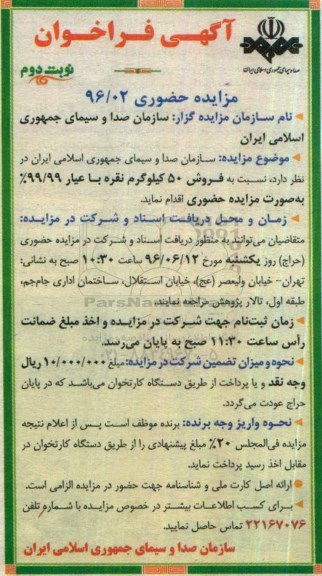 آگهی فراخوان
صدا و سیمای جمهوری اسلامی ایران
نوبت دوم
مزایده حضوری ۹۶/۰۲
نام سازمان مزایده گزار: سازمان صدا و سیمای جمهوری
اسلامی ایران
موضوع مزایده: سازمان صدا و سیمای جمهوری اسلامی ایران در
نظر دارد، نسبت به فروش ۵۰ کیلوگرم نقره با عیار ۹۹/۹۹٪
به‌صورت مزایده حضوری اقدام نماید.
زمان و محل دریافت اسناد و شرکت در مزایده:
متقاضیان می‌توانند به منظور دریافت اسناد و شرکت در مزایده حضوری
(حراج) روز یکشنبه مورخ ۹۶/۰۶/۱۲ ساعت ۱۰:۳۰ صبح به نشانی:
تهران- خیابان ولیعصر (عج)، خیابان استقلال، ساختمان اداری جام‌جم،
طبقه اول، تالار پژوهش مراجعه نمایند.
زمان ثبت‌نام جهت شرکت در مزایده و اخذ مبلغ ضمانت
رأس ساعت ۱۱:۳۰ صبح به پایان می‌رسد.
نحوه و میزان تضمین شرکت در مزایده: مبلغ ۱۰/۰۰۰/۰۰۰ ریال
وجه نقد و یا پرداخت از طریق دستگاه کارتخوان می‌باشد که در پایان
حراج عودت می‌گردد.
نحوه واریز وجه برنده: برنده موظف است پس از اعلام نتیجه
مزایده فی‌المجلس ۲۰٪ مبلغ پیشنهادی را از طریق دستگاه کارتخوان در
مقابل اخذ رسید پرداخت نماید.
ارائه اصل کارت ملی و شناسنامه جهت حضور در مزایده الزامی است.
برای کسب اطلاعات بیشتر در خصوص مزایده با شماره تلفن
۲۲۱۶۷۰۷۶ تماس حاصل نمایید.
سازمان صدا و سیمای جمهوری اسلامی ایران